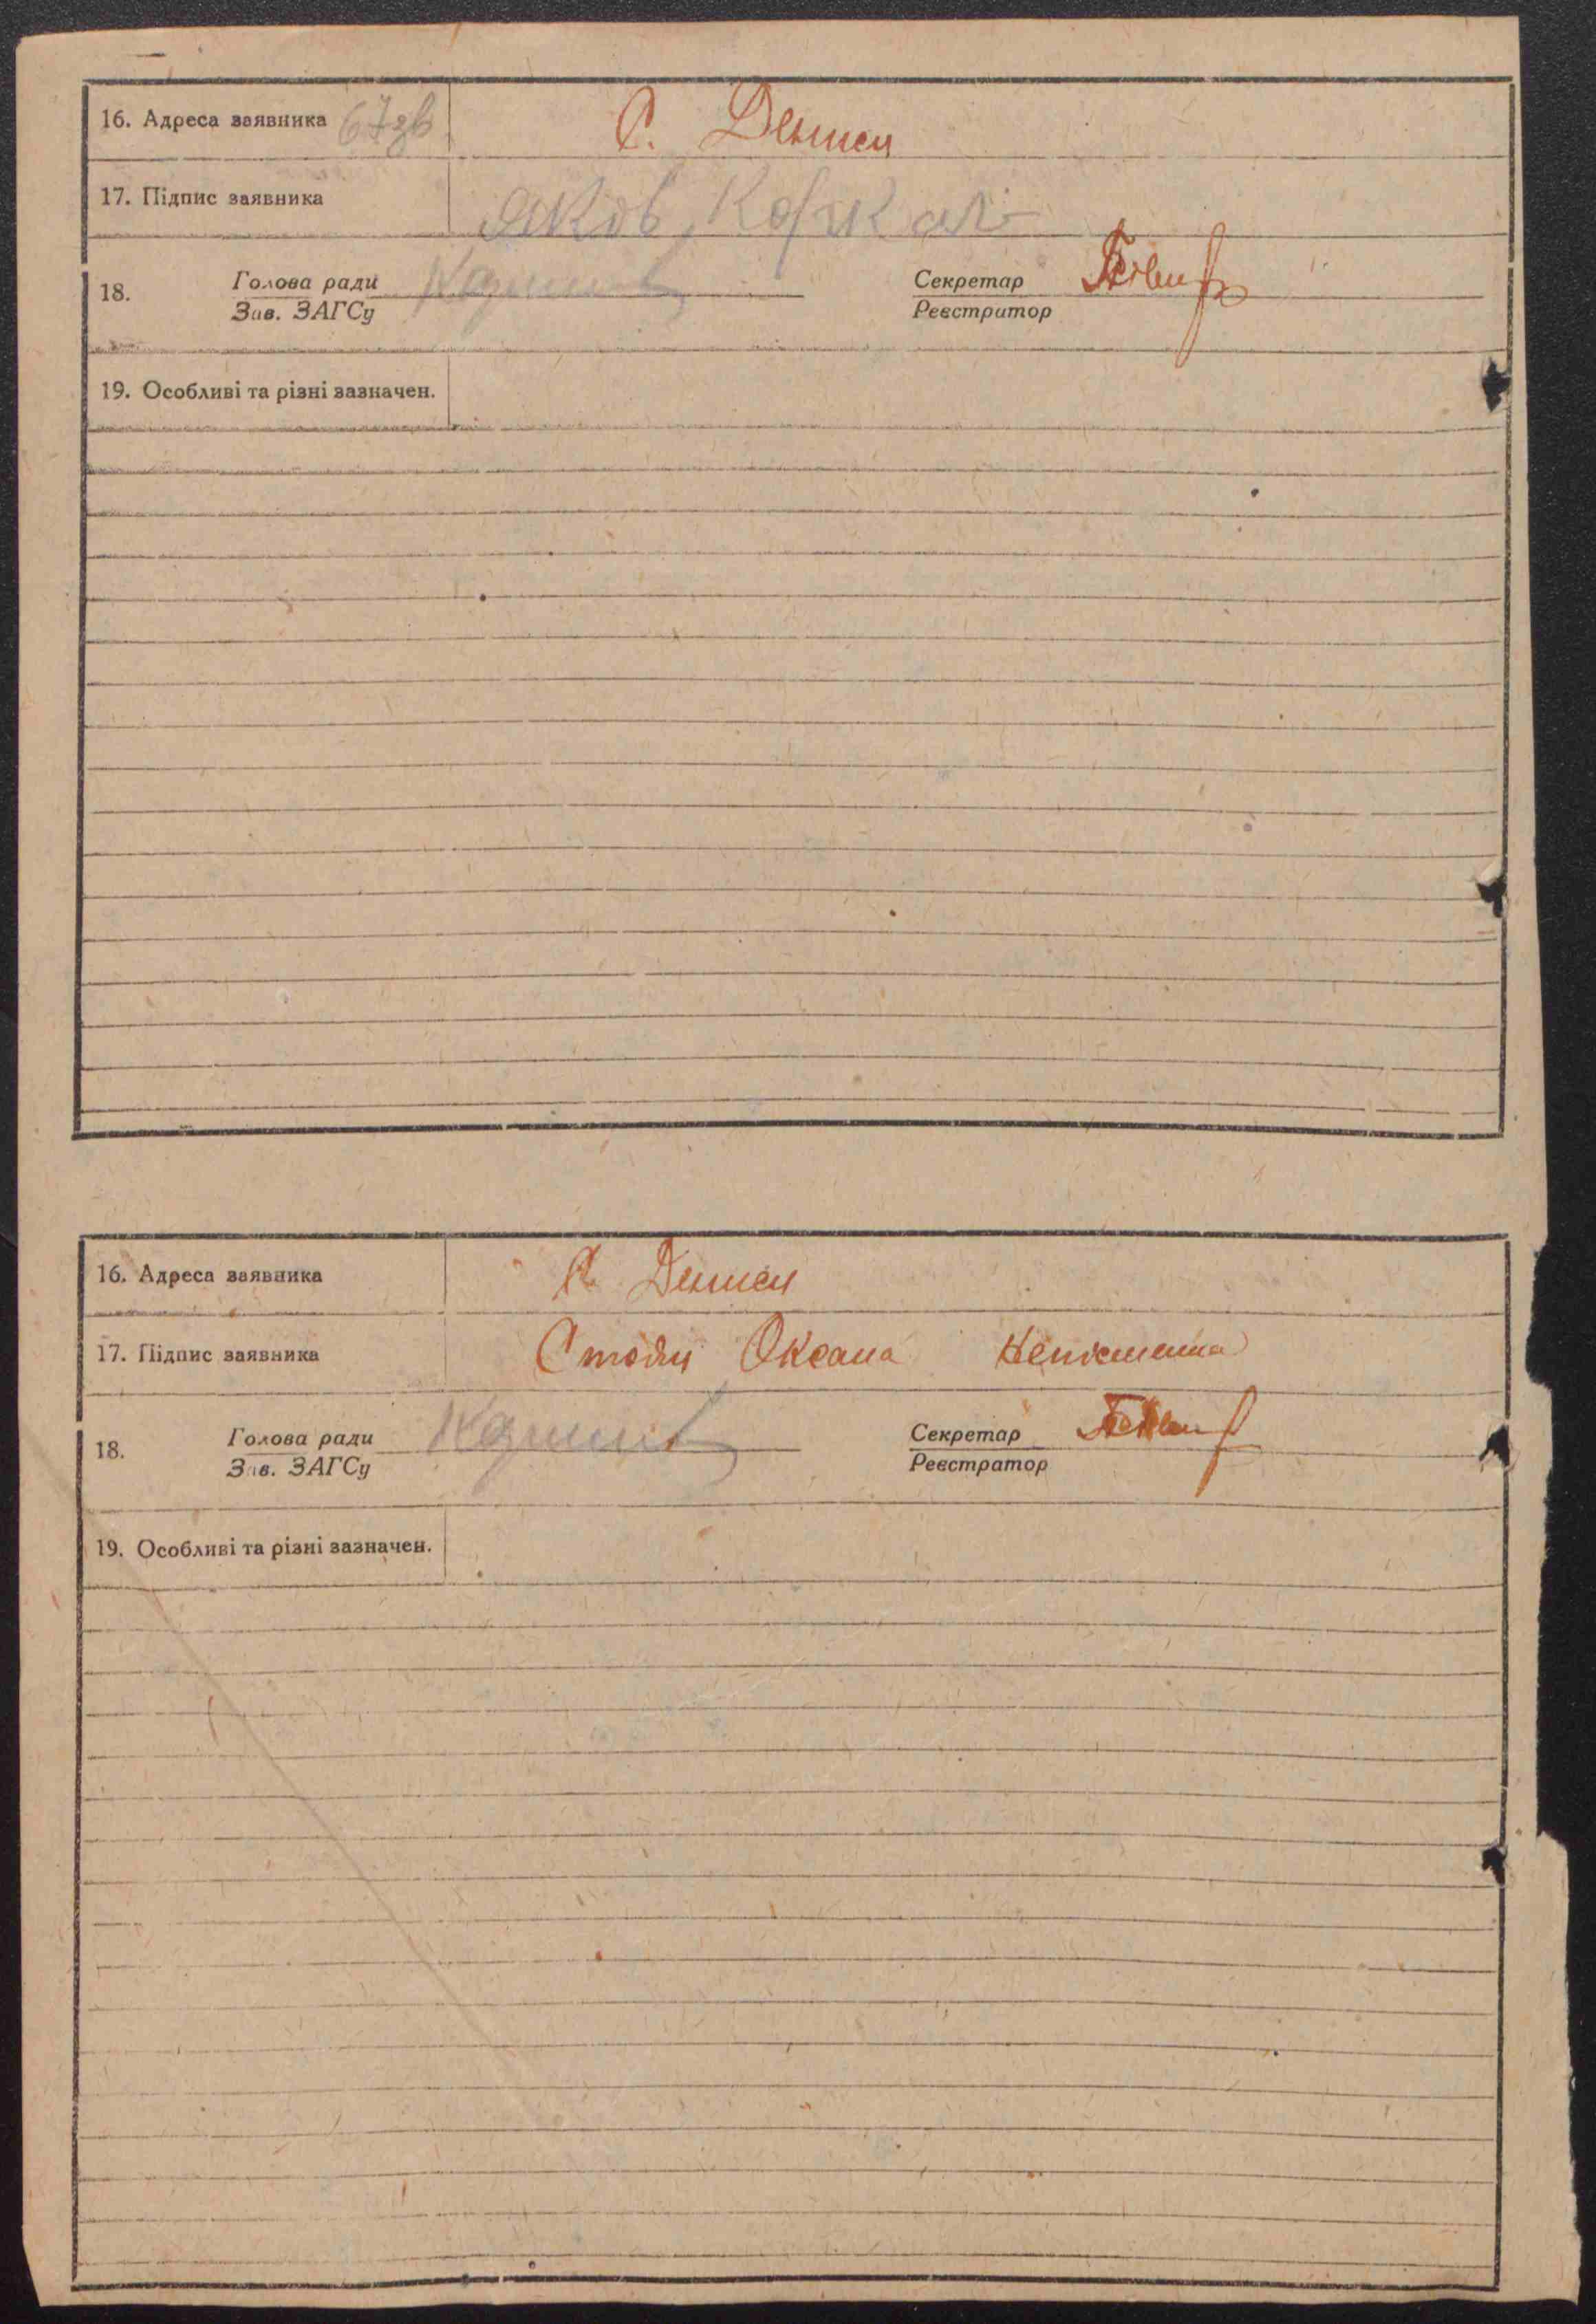 16. Адреса заявника 67зв С. Дениси
17. Підпис заявника Яков Коржал
18. Голова ради Секретар
Зав. ЗАГСу Реєстратор
19. Особливі та різні зазначен.
16. Адреса заявника С. Дениси
17. Підпис заявника Стовли Оксана Неписменна
18. Голова ради Секретар
Зав. ЗАГСу Реєстратор
19. Особливі та різні зазначен.